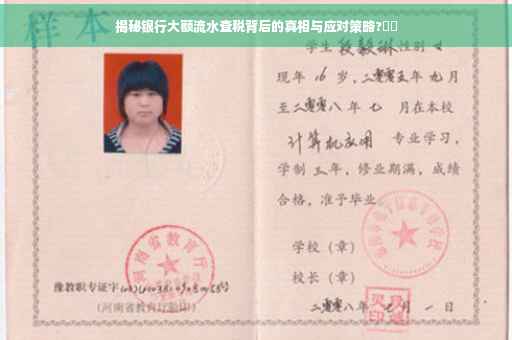 揭秘银行大额流水查税背后的真相与应对策略?
样本
学生段毅琳性别女
现年16岁,二零零五年九月
至二零零八年七月在本校
计算机应用专业学习,
学制三年,修业期满,成绩
合格,准予毕业。
学校(章)
校长(章)
二零零八年七月一日
河南省教育厅
豫教职专证字
(河南省教育厅验印)